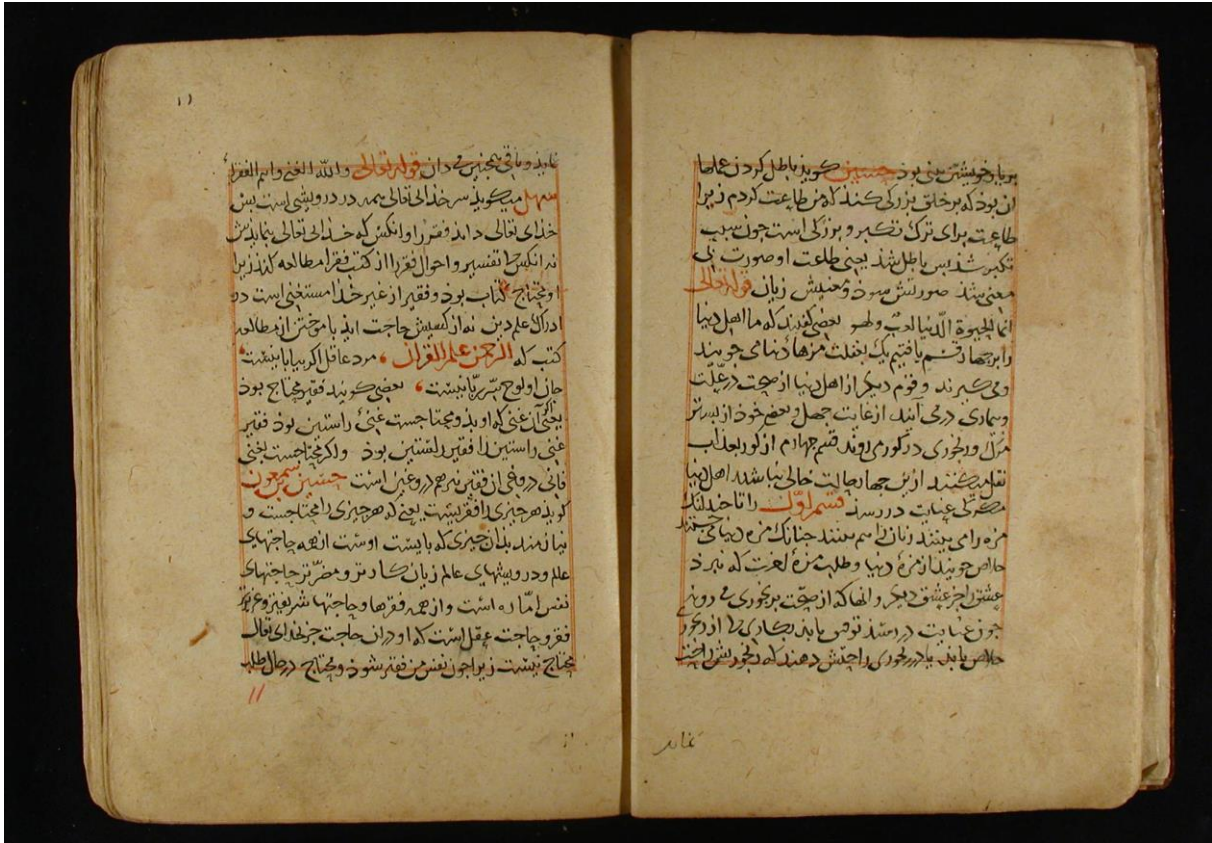 بر یار خویشتن بینی بوذ حسین کویذ باطل کردن عملها
ان بوذ که بر خلق بزرکی کنند که من طاعت کردم زیرا
طاعت برای ترک تکبر و بزرکی است جون سبب
تکبر شذ بس باطل شذ یعنی طاعت او صورت بی
معنی شذ صورتش سوذ و معنیش زیان قوله تعالی
انما الحیوة الدنیا لعب ولهو بعضی کفتند که ما اهل دنیا
را بر جهار قسم یافتیم یک بغفلت مزهاء دنیا می جویند
و می کیرند و قوم دیکر از اهل دنیا از صحت در علت
و بیماری در می آیند از غایت جهل و بعضی خوذ از بستر
مرک و رنجوری در کور می روند قسم جهارم از کور بعذاب
نقل میکنند ازین جهار حالت خالی نباشند اهل دنیا
مکر کی عنایت در رسذ قسم اول را تا جنانک
مزه را می بینند زیان را هم بینند جنانک مزه دنیا می جستند
خلاص جویند از مزهٔ دنیا و طلب مزهٔ آخرت که نبرد
عشق را جز عشق دیکر و انها که از صحت برنجوری می روند
جون عنایت در رسذ توفیق یابذ بیکاری را از رنجور
خلاص یابذ یا در رنجوری راحتش دهند که رنجوریش راحت
نمایذ
نمایذ و باقی همجنین می دان قوله تعالی والله الغنی وانتم الفقرا
سهل میکویذ سر خذای تعالی همه در درویشی است بس
خذای تعالی دانذ فقر را و انکس که خذای تعالی بنمایذش
نه انکس که تفسیر و احوال فقر را از کتب فقرا مطالعه کنذ زیرا
او محتاج کتاب بوذ و فقیر از غیر خذا مستغنی است در
ادراک علم دین نه از کسیش حاجت ایذ باموختن از مطالعه
کتب که الرحمن علم القران مرد عاقل اکر بیابانیست
جان او لوح سر ربانیست بعضی کویند فقیر محتاج بوذ
یعنی آن غنی که او بذو محتاجست غنئ راستین بوذ فقیر
غنی راستین را فقیر راستین بوذ و اکر محتاجست بغنی
فانی دروغی ان فقیر نیز هم دروغین است حسین بن سمعون
کویذ هر جیزی را فقریست یعنی که هر جیزی را محتاجست و
نیازمند بذان جیزی که بایست اوست از همه حاجتهای
عالم و درویشیهای عالم زیان کارتر و مضرتر حاجتهای
نفس اماره است و از همه فقرها و حاجتها شریفتر و عزیزتر
فقر و حاجت عقل است که او دران حاجت جز بخذای تعالی
محتاج نیست زیرا جون نفس من فقیر شوذ و محتاج در حال طلب
۱۱
11